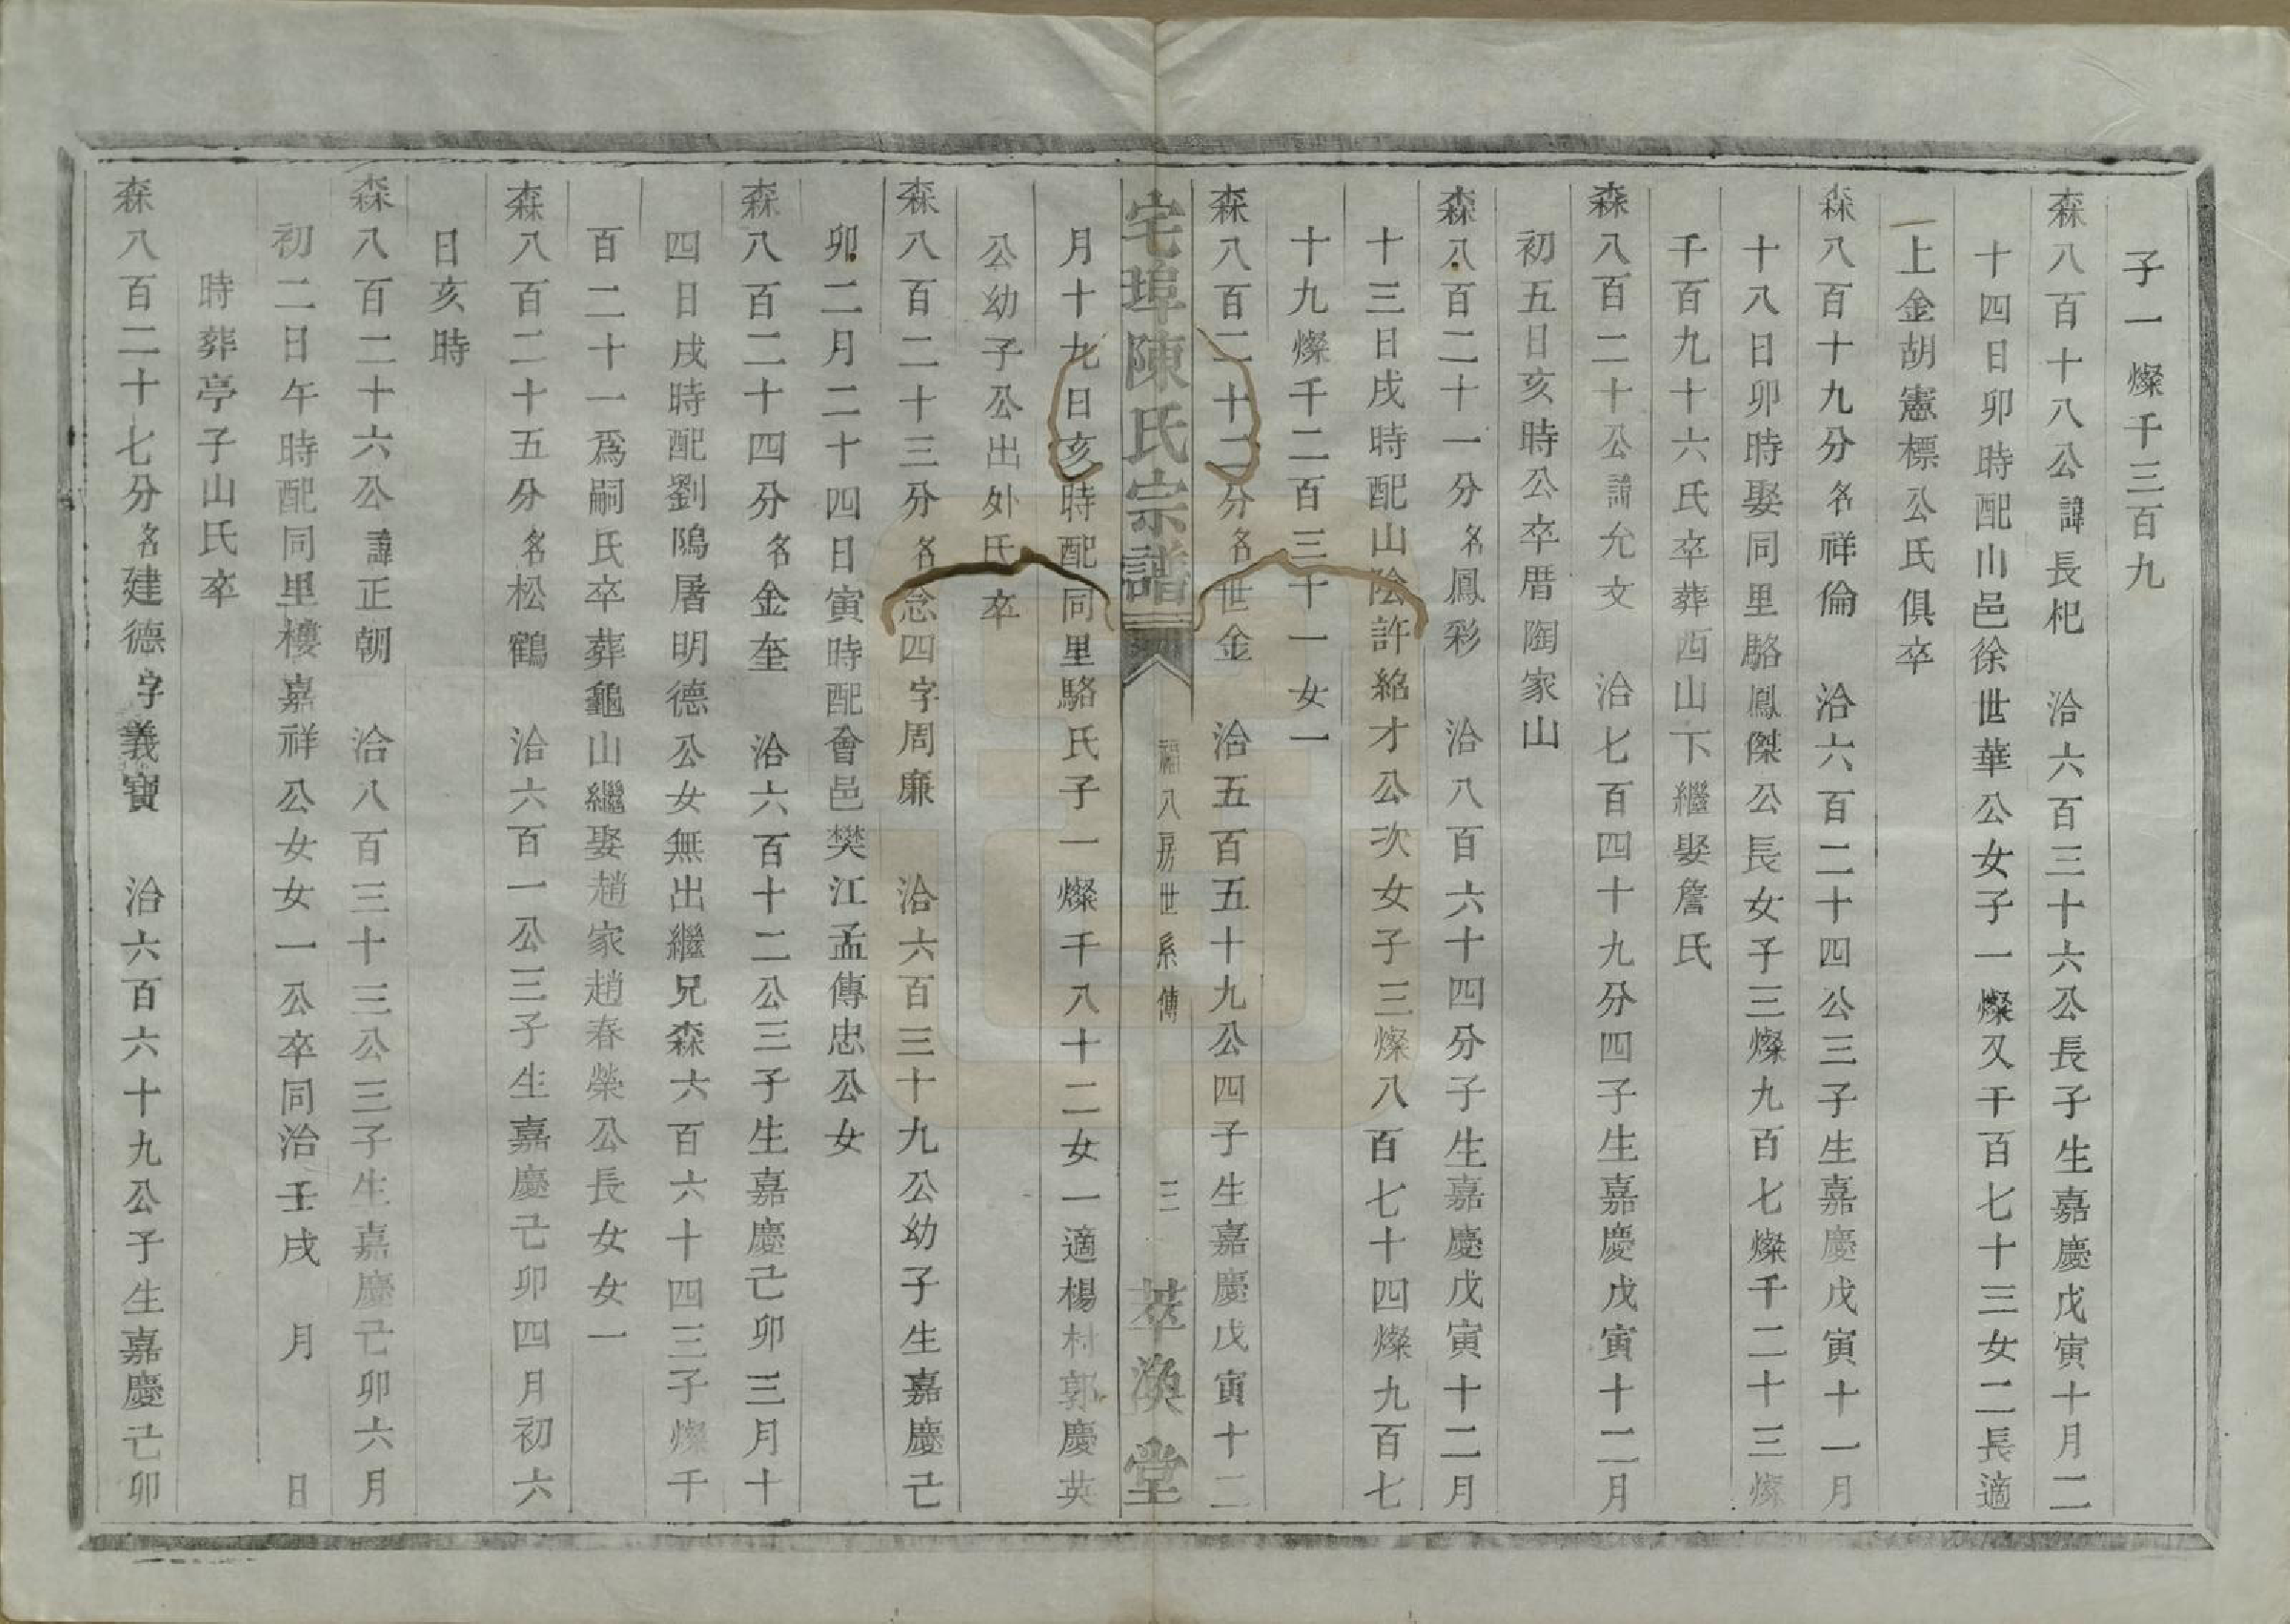 子一燦千三百九
森八百十八公諱長杞　洽六百三十六公長子生嘉慶戊寅十月二
十四日卯時配山邑徐世華公女子一燦又千百七十三女二長適
上金胡憲標公氏俱卒
森八百十九分名祥倫　洽六百二十四公三子生嘉慶戊寅十一月
十八日卯時娶同里駱鳳傑公長女子三燦九百七燦千二十三燦
千百九十六氏卒葬西山下繼娶詹氏
森八百二十公諱允文　洽七百四十九分四子生嘉慶戊寅十二月
初五日亥時公卒厝陶家山
森八百二十一分名鳳彩　洽八百六十四分子生嘉慶戊寅十二月
十三日戌時配山陰許綌才公次女子三燦八百七十四燦九百七
十九燦千二百三十一女一
森八百二十二分名世金　洽五百五十九公四子生嘉慶戊寅十二
宅埠陳氏宗譜　福八房世系傳　三　萃渙堂
月十九日亥時配同里駱氏子一燦千八十二女一適楊村郭慶英
公幼子公出外氏卒
森八百二十三分名念四字周廉　洽六百三十九公幼子生嘉慶己
卯二月二十四日寅時配會邑樊江孟傳忠公女
森八百二十四分名金奎　洽六百十二公三子生嘉慶己卯三月十
四日戌時配劉隖屠明德公女無出繼兄森六百六十四三子燦千
百二十一爲嗣氏卒葬龜山繼娶趙家趙春榮公長女女一
森八百二十五分名松鶴　洽六百一公三子生嘉慶己卯四月初六
日亥時
森八百二十六公諱正朝　洽八百三十三公三子生嘉慶己卯六月
初二日午時配同里樓嘉祥公女女一公卒同治壬戌　月　　日
時葬亭子山氏卒
森八百二十七分名建德字義寶　洽六百六十九公子生嘉慶己卯